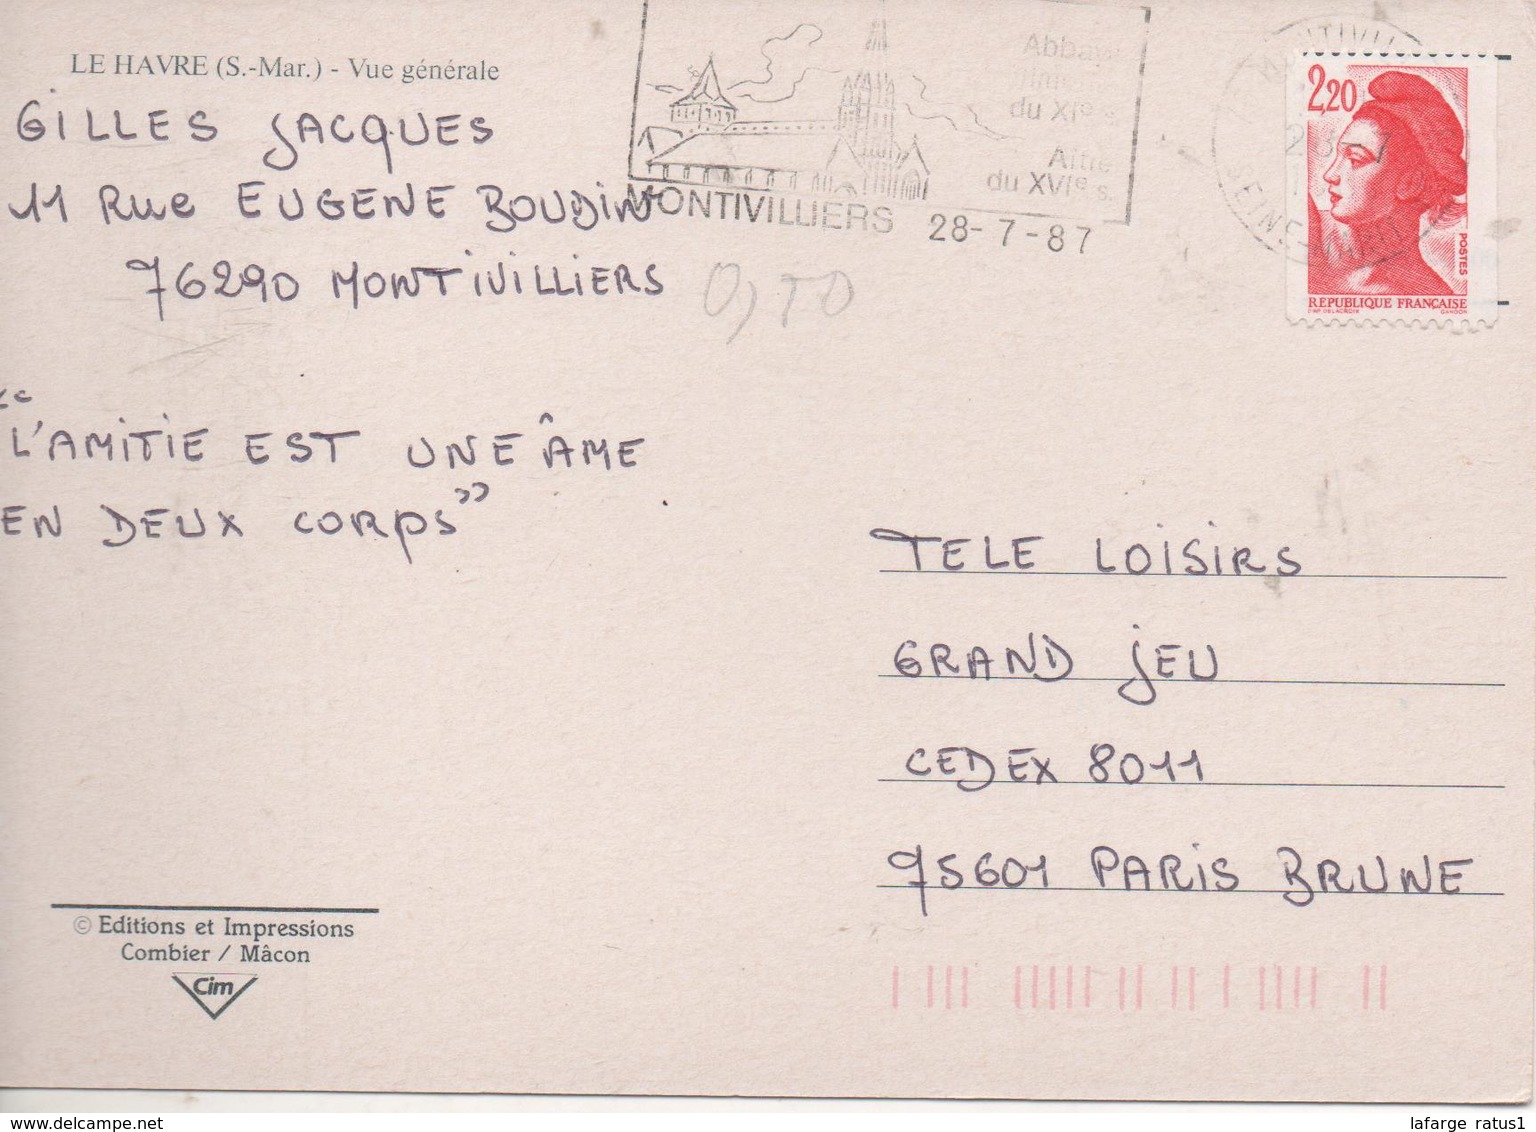 LE HAVRE (S.-Mar.) - Vue générale
GILLES JACQUES
11 Rue EUGENE BOUDIN
76290 MONTIVILLIERS
Abbaye
du XIe s.
Aitre
du XVIe s.
MONTIVILLIERS 28-7-87
2,20
POSTES
RÉPUBLIQUE FRANÇAISE
D'AP. DELACROIX GANDON
SEINE-MARIT
"L'AMITIE EST UNE ÂME
EN DEUX CORPS"
TELE LOISIRS
GRAND JEU
CEDEX 8011
75601 PARIS BRUNE
© Editions et Impressions
Combier / Mâcon
Cim
www.delcampe.net
lafarge ratus1